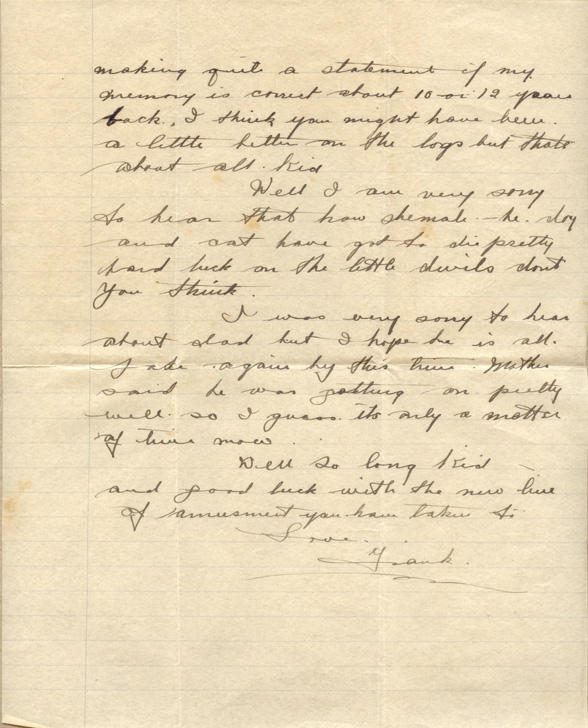 making quite a statement if my
memory is correct about 10 or 12 years
back, I think you might have been
a little better on the logs but thats
about all. Kid
Well I am very sorry
to hear that how shemale - he. dog
and cat have got to die pretty
hard luck on the little divils dont
you think.
I was very sorry to hear
about dad but I hope he is all.
Jake again by this time. Mother
said he was getting on pretty
well. so I guess its only a matter
of time now.
Well so long Kid -
and good luck with the new line
of amusment you have taken to
Love.
Frank.